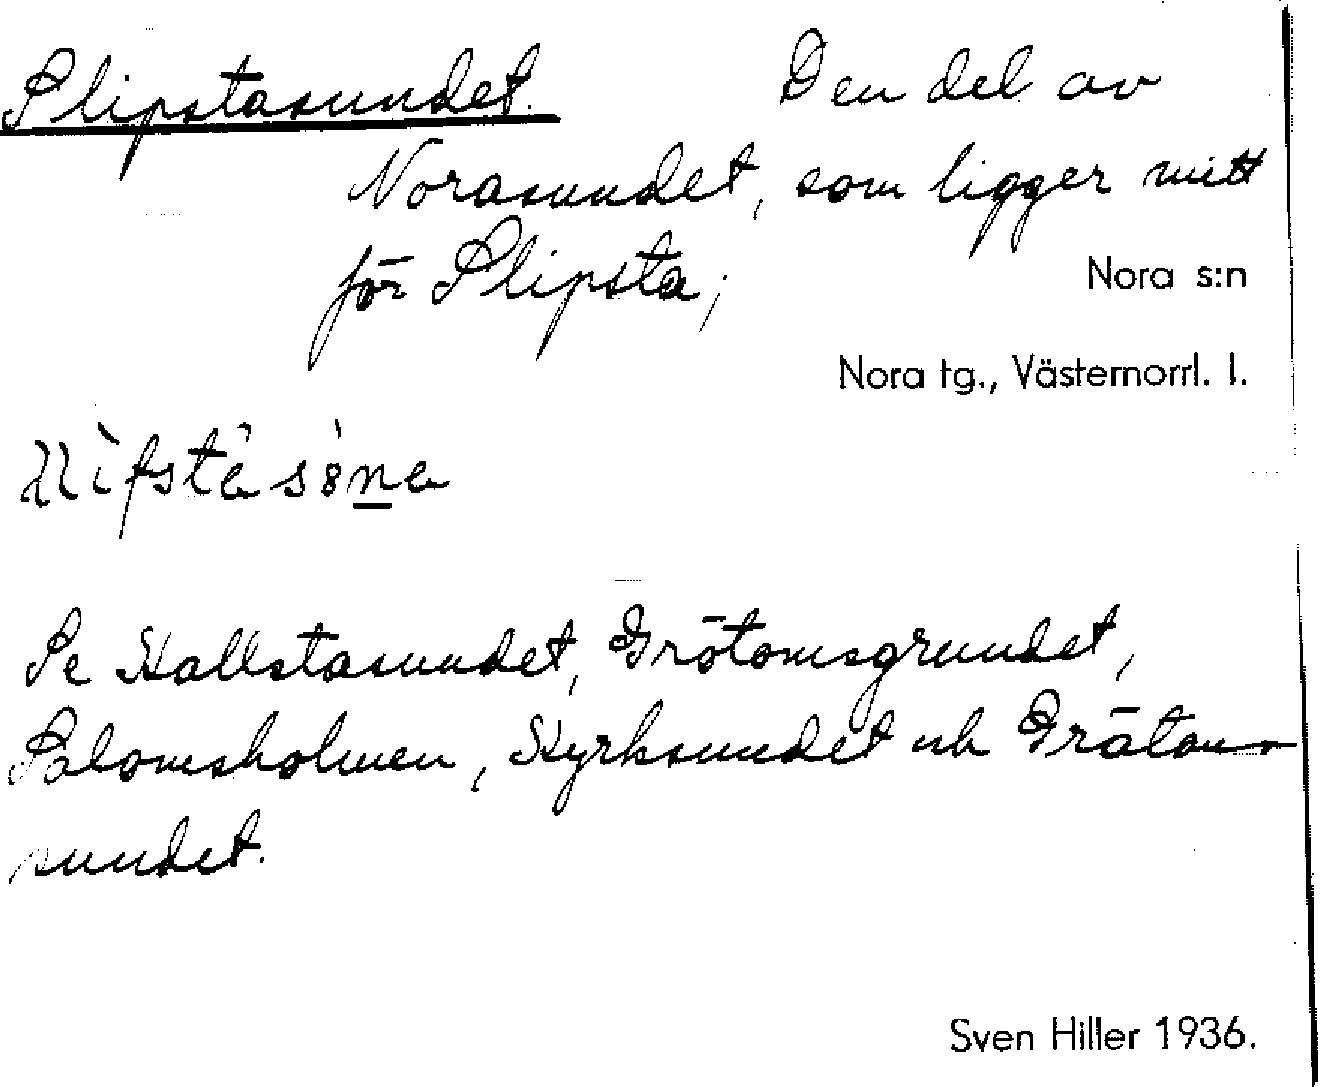 Slipstasundet. Den del av
Norasundet, som ligger mitt
för Slipsta; Nora s:n
Nora tg., Västernorrl. l.
Se Hallstasundet, Grötomsgrundet,
Salomsholmen, Kyrksundet och Grätom-
sundet.
Sven Hiller 1936.